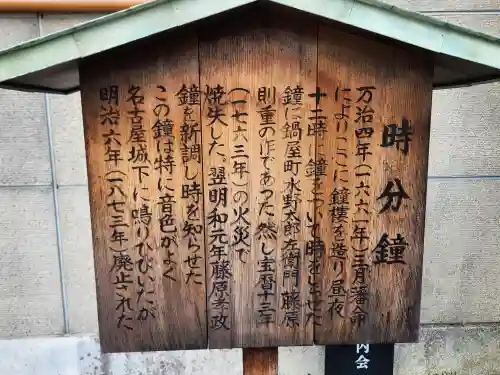 時分鐘
万治四年(一六六一年)三月藩命
によりここに鐘楼を造り昼夜
十二時に鐘をついて時をしらせた
鐘は鍋屋町水野太郎左衛門藤原
則重の作であった然し宝暦十三年
(一七六三年)の火災で
焼失した翌明和元年藤原孝政
鐘を新調し時を知らせた
この鐘は特に音色がよく
名古屋城下に鳴りひびいたが
明治六年(一八七三年)廃止された
内会